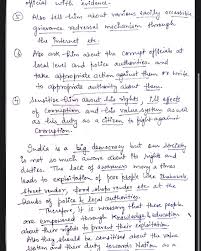 official with evidence.
⑤ Also tell him about various easily accessible
grievance redressal mechanism through
the Internet etc.
⑥ Also ask him about the corrupt officials at
local level and police authorities and
take appropriate action against them or write
to appropriate authorities about them.
⑦ Sensitize him about his rights, ill effects
of corruption and his value system as well
as his duty as a citizen to fight against
corruption.
India is a big democracy but our society
is not so much aware about its rights and
duties. This lack of awareness many a times
leads to exploitation of poor people like
street vendor, food shops vendor etc at the
hands of police & local authorities.
Therefore, it is necessary that these people
are empowered through knowledge & education
about their rights to prevent their exploitation.
Also they should be sensitized about the value
system and their duty towards Nation as a